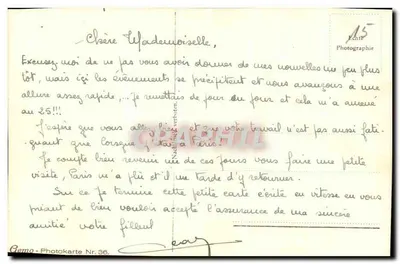 15
Photographie
Chère Mademoiselle,
Excusez moi de ne pas vous avoir donner de mes nouvelles un peu plus
tôt, mais ici les évènements se précipitent et nous avançons à une
allure assez rapide,... je remettais de jour en jour et cela m'a amené
au 25!!!
J'espère que vous bien et votre travail n'est pas aussi fati-
guant que lorsque à Paris!
Je compte bien revenir un de ces jours vous faire une petite
visite, Paris m'a plu et il me tarde d'y retourner.
Sur ce je termine cette petite carte écrite en vitesse en vous
priant de bien vouloir accepté l'assurance de ma sincère
amitié votre filleul
Gemo - Photokarte Nr. 36.